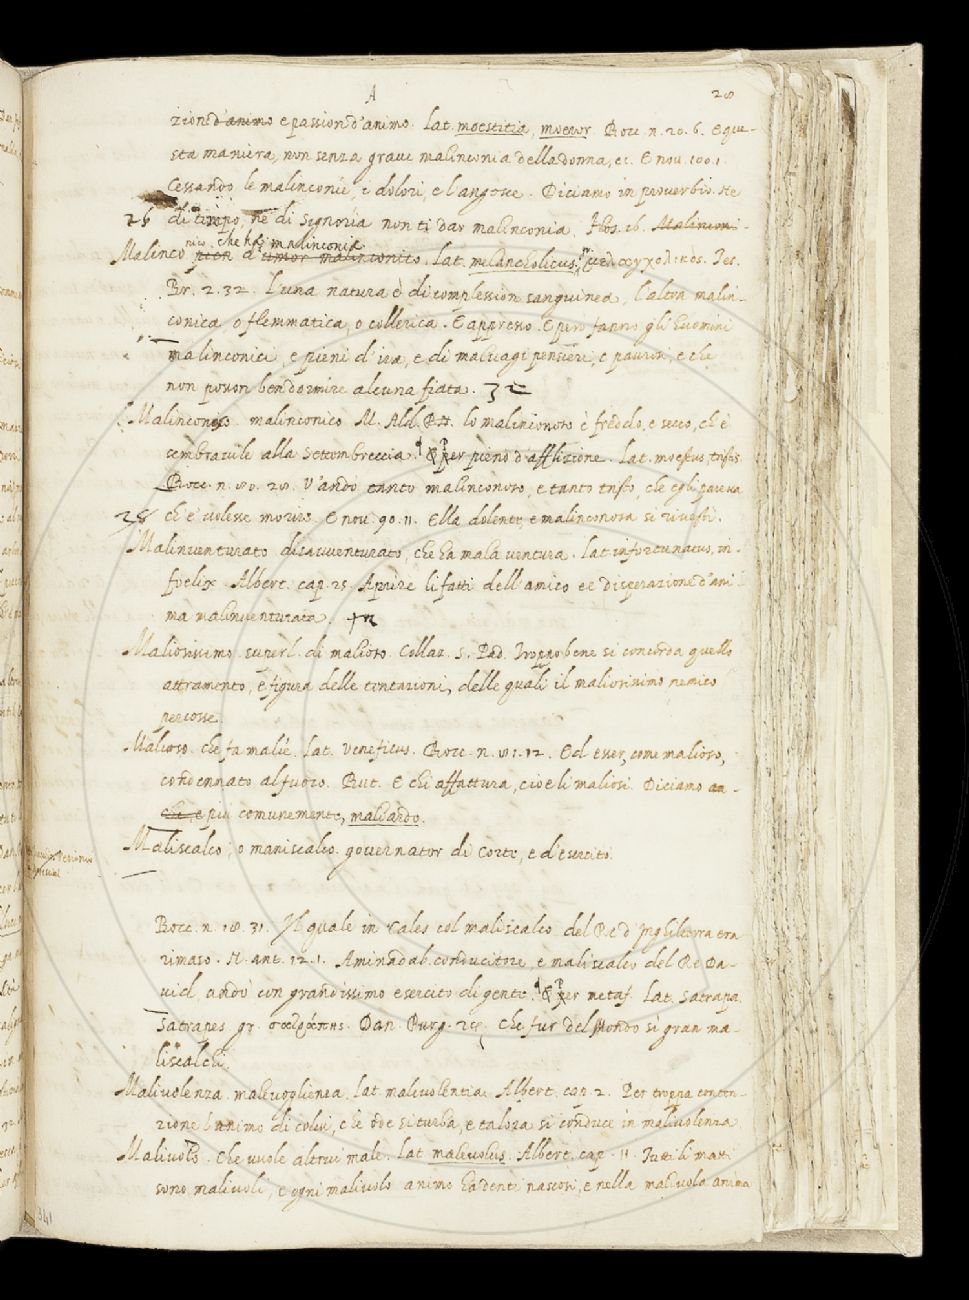 A 28
zion d'animo e passion d'animo. Lat. moestitia, moeror. Bocc. n. 20. 6. E que-
sta maniera, non senza grave malinconia della donna, ec. E nov. 100. 1.
Cessando le malinconie, e dolori, e l'angosce. Diciamo in proverbio. Ne
26 di tempo, ne di signoria non ti dar malinconia. Flos. 16. Malinconi-
nico. che ha malinconia
Malinco d'umor malinconico. Lat. melancholicus. μελαγχολικὸς. Tes.
Br. 2. 32. L'una natura è di complession sanguinea, l'altra malin-
conica o flemmatica, o collerica. E appresso. E però fanno gli huomini
malinconici, e pieni d'ira, e di malvagi pensieri, e paurosi, e che
non posson ben dormire alcuna fiata.
Malinconoso. malinconico M. Ald. lo malinconoso è freddo, e secco, ch'è
sembravile alla Settembreccia. & per pieno d'afflizione. Lat. moestus, tristis.
Bocc. n. 80. 28. V'andò tanto malinconoso, e tanto tristo, che egli pareva
28 ch'e' volesse morire. E nov. 90. 11. Ella dolente, e malinconosa si rivestì.
Malinventurato disavventurato, che ha mala ventura. Lat. infortunatus, in-
foelix. Albert. cap. 25. Apuire li fatti dell'amico ee disperazione d'ani-
ma malinventurata.
Maliosissimo. superl. di malioso. Collaz. S. Pad. Troppo bene si concorda quello
attramento, e figura delle tentazioni, delle quali il maliosissimo nemico
percosse.
Malioso. che fa malie. Lat. Veneficus. Bocc. n. 81. 12. Ed esser, come malioso,
condennato al fuoco. But. E chi affattura, cioè li maliosi. Diciamo an-
che e più comunemente, maliardo.
Maliscalco, o maniscalco. governator di Corte, e d'esercito.
Bocc. n. 18. 31. Il quale in Cales col maliscalco del Re d'Inghilterra era
rimaso. N. ant. 12. 1. Aminadab conducitore, e maliscalco del Re Da-
vid, andò con grandissimo esercito di gente. & per metaf. Lat. Satrapa,
Satrapes gr. σατράπης. Dan. Purg. 24. Che fur del Mondo sì gran ma-
liscalchi.
Malivolenza. malevoglienza. Lat. malivolentia. Albert. cap. 2. Per troppa conten-
zione l'animo di colui, che ode si turba, e talora si conduce in malivolenza.
Malivolo. Che vuole altrui male. Lat. malevolus. Albert. cap. 11. Tutti li matti
sono malivoli, e ogni malivolo animo ha denti nascosi, e nella malivola anima
341